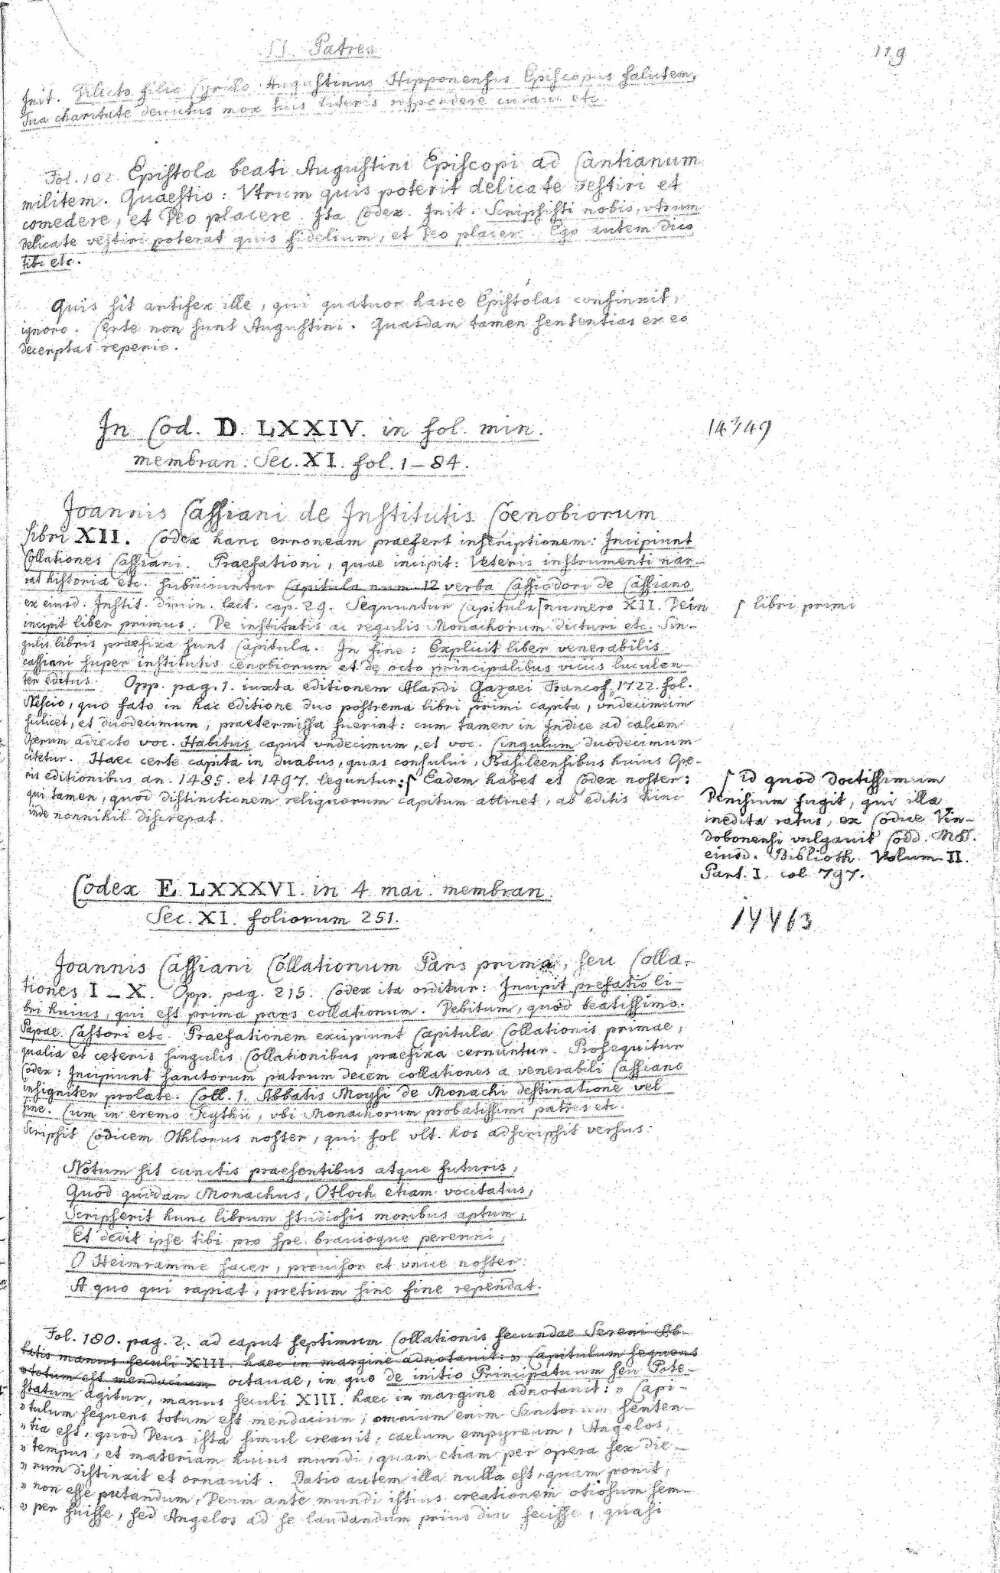 SS. Patres
119
Init. Dilecto filio Cyrillo Augustinus Hipponensis Episcopus salutem.
Tua charitate devictus mox tuis literis respondere curavi etc.
Fol. 102. Epistola beati Augustini Episcopi ad Cantianum
militem. Quaestio: Vtrum quis poterit delicate vestiri et
comedere, et Deo placere. Ita Codex. Init. Scripsisti nobis, vtrum
delicate vestiri poterat quis fidelium, et Deo placer. Ego autem dico
tibi etc.
Quis sit artifex ille, qui quatuor hasce Epistolas confinxit,
ignoro. Certe non sunt Augustini. Quasdam tamen sententias ex eo
decerptas reperio.
In Cod. D. LXXIV. in fol. min.
14749
membran. Sec. XI. fol. 1–84.
Joannis Cassiani de Institutis Coenobiorum
libri XII. Codex hanc erroneam praefert inscriptionem: Incipiunt
Collationes Cassiani. Praefationi, quae incipit: Veteris instrumenti nar-
rat historia etc. subiiciuntur Capitula num. 12 verba Cassiodori de Cassiano
ex eiusd. Instit. divin. lect. cap. 29. Sequuntur Capitula ſ numero XII. Dein
ſ libri primi
incipit liber primus: De institutis ac regulis Monachorum dicturi etc. Sin-
gulis libris praefixa sunt Capitula. In fine: Explicit liber venerabilis
Cassiani super institutis cenobiorum et de octo principalibus viciis luculen-
ter editus. Opp. pag. 1. iuxta editionem Alardi Gazaei Francof. 1722. fol.
Nescio, quo fato in hac editione duo postrema libri primi capita, vndecimum
scilicet, et duodecimum, praetermissa fuerint: cum tamen in Indice ad calcem
Operum adiecto voc. Habitus caput vndecimum, et voc. Cingulum duodecimum
citetur. Haec certe capita in duabus, quas consului, Basileensibus huius Ope-
ris editionibus an. 1485. et 1497. leguntur: ſ Eadem habet et Codex noster:
qui tamen, quod distinctionem reliquorum capitum attinet, ab editis hinc
inde nonnihil discrepat.
ſ id quod doctissimum
Denisium fugit, qui illa
inedita ratus, ex Codice Vin-
dobonensi vulgavit Codd. MSS.
eiusd. Biblioth. Volum. II.
Part. I. col. 797.
Codex E. LXXXVI. in 4 mai. membran.
Sec. XI. foliorum 251.
14463
Joannis Cassiani Collationum Pars prima, seu Colla-
tiones I–X. Opp. pag. 215. Codex ita orditur: Incipit prefatio li-
bri huius, qui est prima pars collationum. Debitum, quod beatissimo
Papae Castori etc. Praefationem excipiunt Capitula Collationis primae,
qualia et ceteris singulis Collationibus praefixa cernuntur. Prosequitur
Codex: Incipiunt sanctorum patrum decem collationes a venerabili Cassiano
insigniter prolate. Coll. 1. Abbatis Moysi de Monachi destinatione vel
fine. Cum in eremo Scythii, vbi Monachorum probatissimi patres etc.
Scripsit Codicem Othlonus noster, qui fol. vlt. hos adscripsit versus:
Notum sit cunctis praesentibus atque futuris,
Quod quidam Monachus, Otloch etiam vocitatus,
Scripserit hunc librum studiosis moribus aptum,
Et dedit ipse tibi pro spe bravioque perenni,
O Heimramme sacer, provisor et vnice noster:
A quo qui rapiat, pretium sine fine rependat.
Fol. 180. pag. 2. ad caput septimum Collationis secundae Sereni Ab-
batis manus seculi XIII. haec in margine adnotavit: » Capitulum sequens
» totum est mendacium octavae, in quo de initio Principatuum seu Pote-
statum agitur, manus seculi XIII. haec in margine adnotavit: » Capi-
» tulum sequens totum est mendacium; omnium enim Sanctorum senten-
» tia est, quod Deus ista simul creavit, caelum empyreum, Angelos,
» tempus, et materiam huius mundi, quam etiam per opera sex die-
» rum distinxit et ornavit. Ratio autem illa nulla est, quam ponit,
» non esse putandum, Deum ante mundi istius creationem otiosum sem-
» per fuisse, sed Angelos ad se laudandum prius diu fecisse, quasi